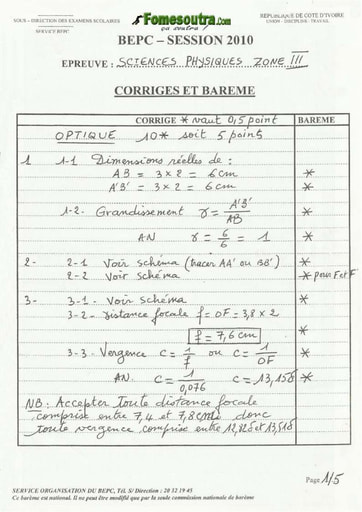 SOUS – DIRECTION DES EXAMENS SCOLAIRES
SERVICE BEPC
Fomesoutra.com
ça soutra !
REPUBLIQUE DE COTE D'IVOIRE
UNION – DISCIPLINE – TRAVAIL
BEPC – SESSION 2010
EPREUVE : SCIENCES PHYSIQUES ZONE III
CORRIGES ET BAREME
CORRIGE * vaut 0,5 point BAREME
OPTIQUE 10* soit 5 points
1 1-1 Dimensions réelles de :
AB = 3 × 2 = 6 cm *
A'B' = 3 × 2 = 6 cm *
1-2- Grandissement γ = A'B'/AB *
AN γ = 6/6 = 1 *
2- 2-1 Voir schéma (tracer AA' ou BB') *
2-2 Voir schéma * pour F et F'
3- 3-1- Voir schéma *
3-2- Distance focale f = OF = 3,8 × 2
f = 7,6 cm *
3-3- Vergence C = 1/f ou C = 1/OF *
AN. C = 1/0,076 C = 13,15δ *
NB: Accepter toute distance focale
comprise entre 7,4 et 7,8 cm donc
toute vergence comprise entre 12,82δ et 13,51δ
Page 1/5
SERVICE ORGANISATION DU BEPC, Tél. S/ Direction : 20 32 19 45
Ce barème est national. Il ne peut être modifié que par la seule commission nationale de barème